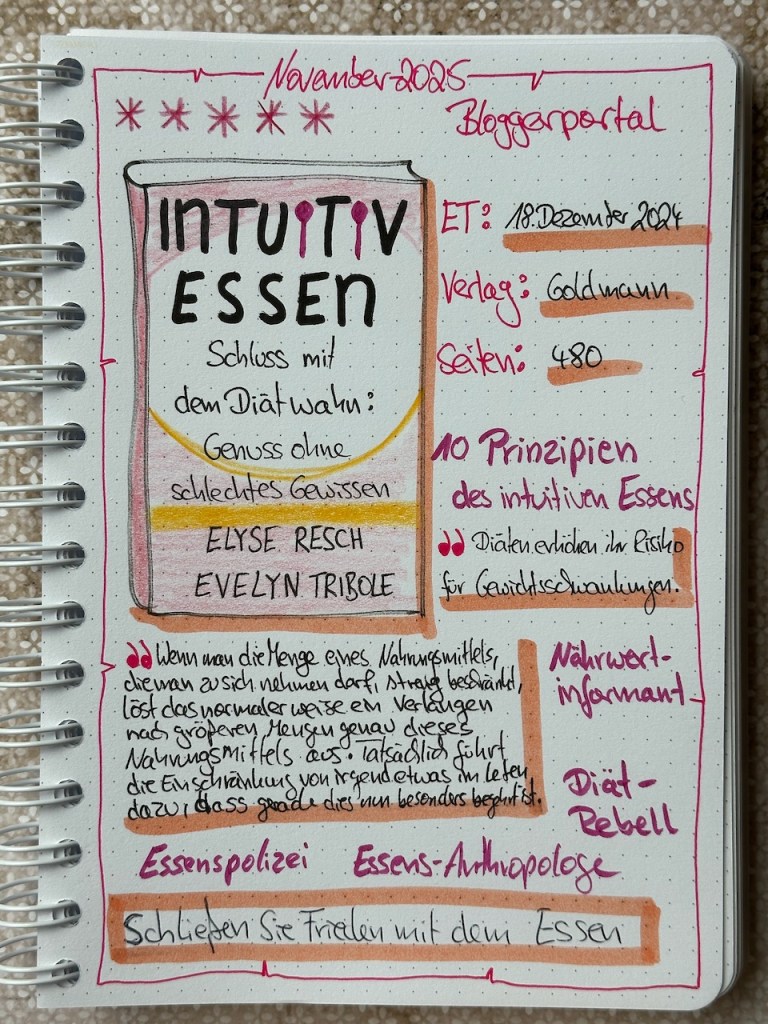 November 2025
Bloggerportal
INTUITIV
ESSEN
Schluss mit
dem Diätwahn:
Genuss ohne
schlechtes Gewissen
ELYSE RESCH
EVELYN TRIBOLE
ET: 18. Dezember 2024
Verlag: Goldmann
Seiten: 480
10 Prinzipien
des intuitiven Essens
"Diäten erhöhen ihr Risiko
für Gewichtsschwankungen.
"Wenn man die Menge eines Nahrungsmittels,
die man zu sich nehmen darf, streng beschränkt,
löst das normalerweise ein Verlangen
nach größeren Mengen genau dieses
Nahrungsmittels aus. Tatsächlich führt
die Einschränkung von irgendetwas im Leben
dazu, dass gerade dies nun besonders begehrt ist.
Nährwert-
informant
Diät-
Rebell
Essenspolizei Essens-Anthropologe
Schließen Sie Frieden mit dem Essen